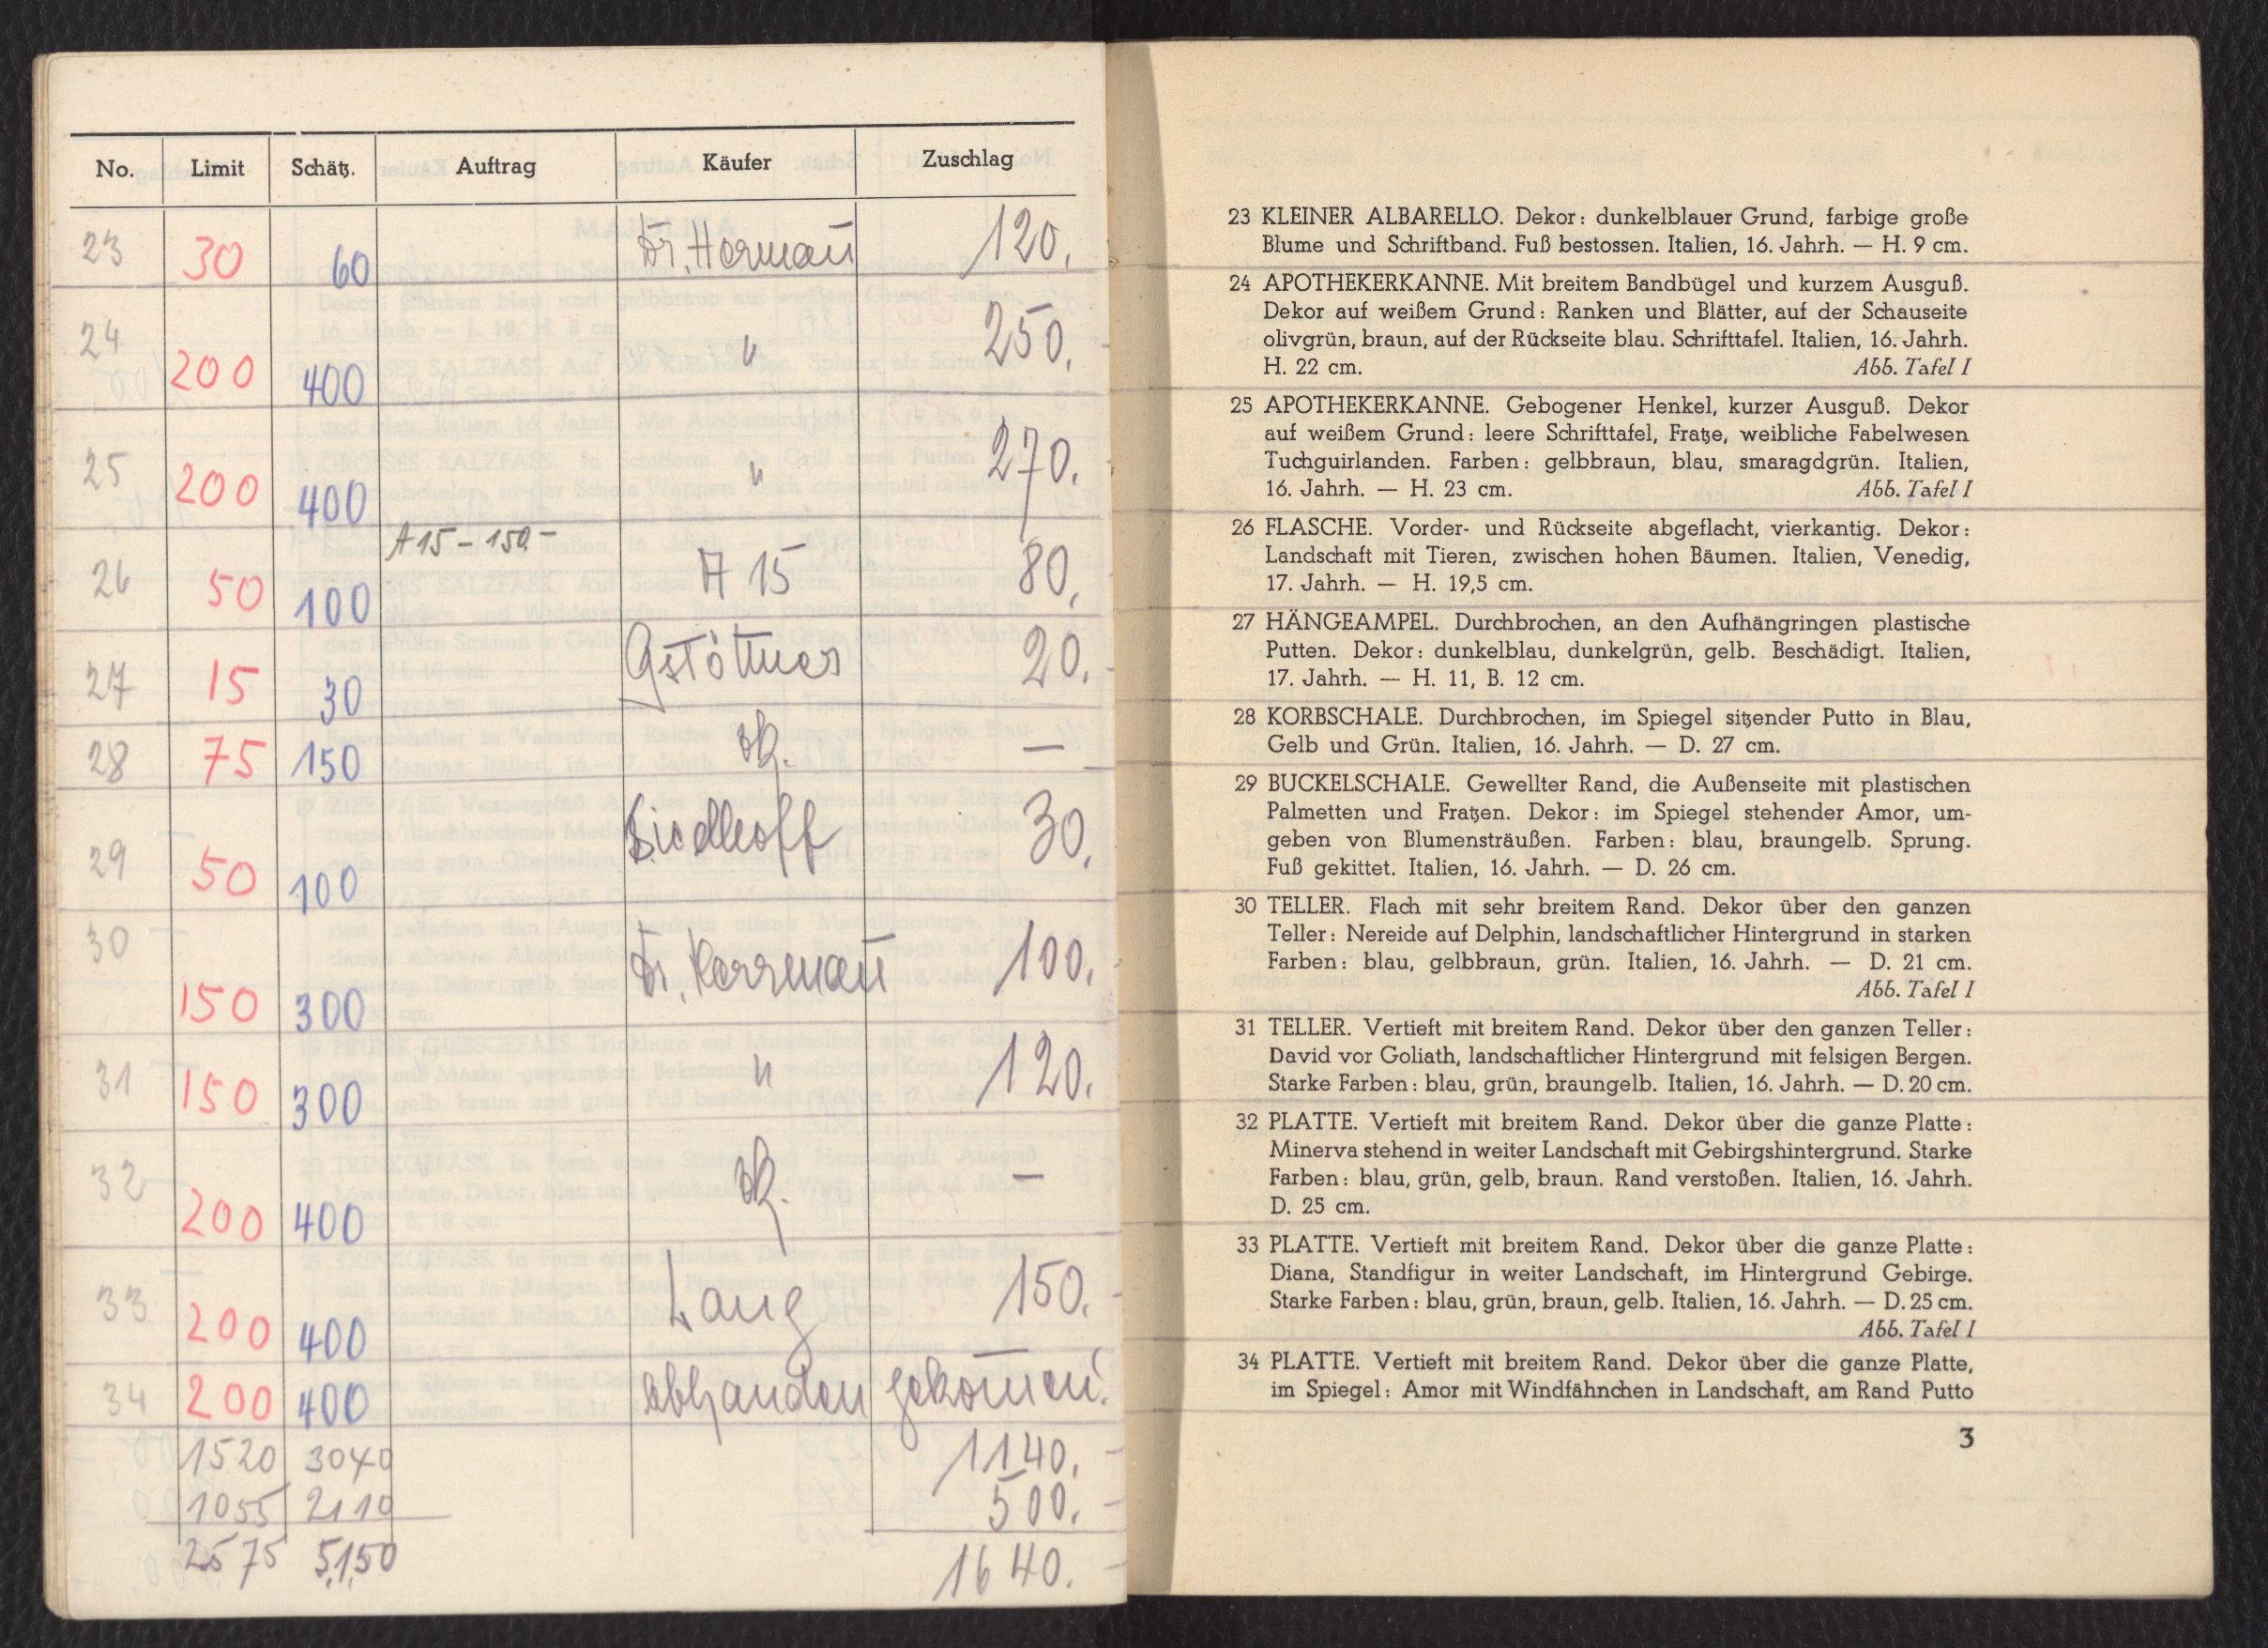 No. Limit Schätz. Auftrag Käufer Zuschlag
23 30 60 Dr. Hermañ 120.
24 200 400 " 250.-
25 200 400 " 270.-
26 50 100 A15 - 150.- A 15 80.-
27 15 30 Gstöttner 20.-
28 75 150 —
29 50 100 30.
30 150 300 Dr. Herrmañ 100.-
31 150 300 " 120.-
32 200 400 —
33 200 400 Lang 150.-
34 200 400 abhanden gekom̄en!
1520 3040 1140.-
1055 2110 500.-
2575 5150 1640.-
23 KLEINER ALBARELLO. Dekor: dunkelblauer Grund, farbige große
Blume und Schriftband. Fuß bestossen. Italien, 16. Jahrh. — H. 9 cm.
24 APOTHEKERKANNE. Mit breitem Bandbügel und kurzem Ausguß.
Dekor auf weißem Grund: Ranken und Blätter, auf der Schauseite
olivgrün, braun, auf der Rückseite blau. Schrifttafel. Italien, 16. Jahrh.
H. 22 cm. Abb. Tafel I
25 APOTHEKERKANNE. Gebogener Henkel, kurzer Ausguß. Dekor
auf weißem Grund: leere Schrifttafel, Fratze, weibliche Fabelwesen
Tuchguirlanden. Farben: gelbbraun, blau, smaragdgrün. Italien,
16. Jahrh. — H. 23 cm. Abb. Tafel I
26 FLASCHE. Vorder- und Rückseite abgeflacht, vierkantig. Dekor:
Landschaft mit Tieren, zwischen hohen Bäumen. Italien, Venedig,
17. Jahrh. — H. 19,5 cm.
27 HÄNGEAMPEL. Durchbrochen, an den Aufhängringen plastische
Putten. Dekor: dunkelblau, dunkelgrün, gelb. Beschädigt. Italien,
17. Jahrh. — H. 11, B. 12 cm.
28 KORBSCHALE. Durchbrochen, im Spiegel sitzender Putto in Blau,
Gelb und Grün. Italien, 16. Jahrh. — D. 27 cm.
29 BUCKELSCHALE. Gewellter Rand, die Außenseite mit plastischen
Palmetten und Fratzen. Dekor: im Spiegel stehender Amor, um-
geben von Blumensträußen. Farben: blau, braungelb. Sprung.
Fuß gekittet. Italien, 16. Jahrh. — D. 26 cm.
30 TELLER. Flach mit sehr breitem Rand. Dekor über den ganzen
Teller: Nereide auf Delphin, landschaftlicher Hintergrund in starken
Farben: blau, gelbbraun, grün. Italien, 16. Jahrh. — D. 21 cm.
Abb. Tafel I
31 TELLER. Vertieft mit breitem Rand. Dekor über den ganzen Teller:
David vor Goliath, landschaftlicher Hintergrund mit felsigen Bergen.
Starke Farben: blau, grün, braungelb. Italien, 16. Jahrh. — D. 20 cm.
32 PLATTE. Vertieft mit breitem Rand. Dekor über die ganze Platte:
Minerva stehend in weiter Landschaft mit Gebirgshintergrund. Starke
Farben: blau, grün, gelb, braun. Rand verstoßen. Italien, 16. Jahrh.
D. 25 cm.
33 PLATTE. Vertieft mit breitem Rand. Dekor über die ganze Platte:
Diana, Standfigur in weiter Landschaft, im Hintergrund Gebirge.
Starke Farben: blau, grün, braun, gelb. Italien, 16. Jahrh. — D. 25 cm.
Abb. Tafel I
34 PLATTE. Vertieft mit breitem Rand. Dekor über die ganze Platte,
im Spiegel: Amor mit Windfähnchen in Landschaft, am Rand Putto
3